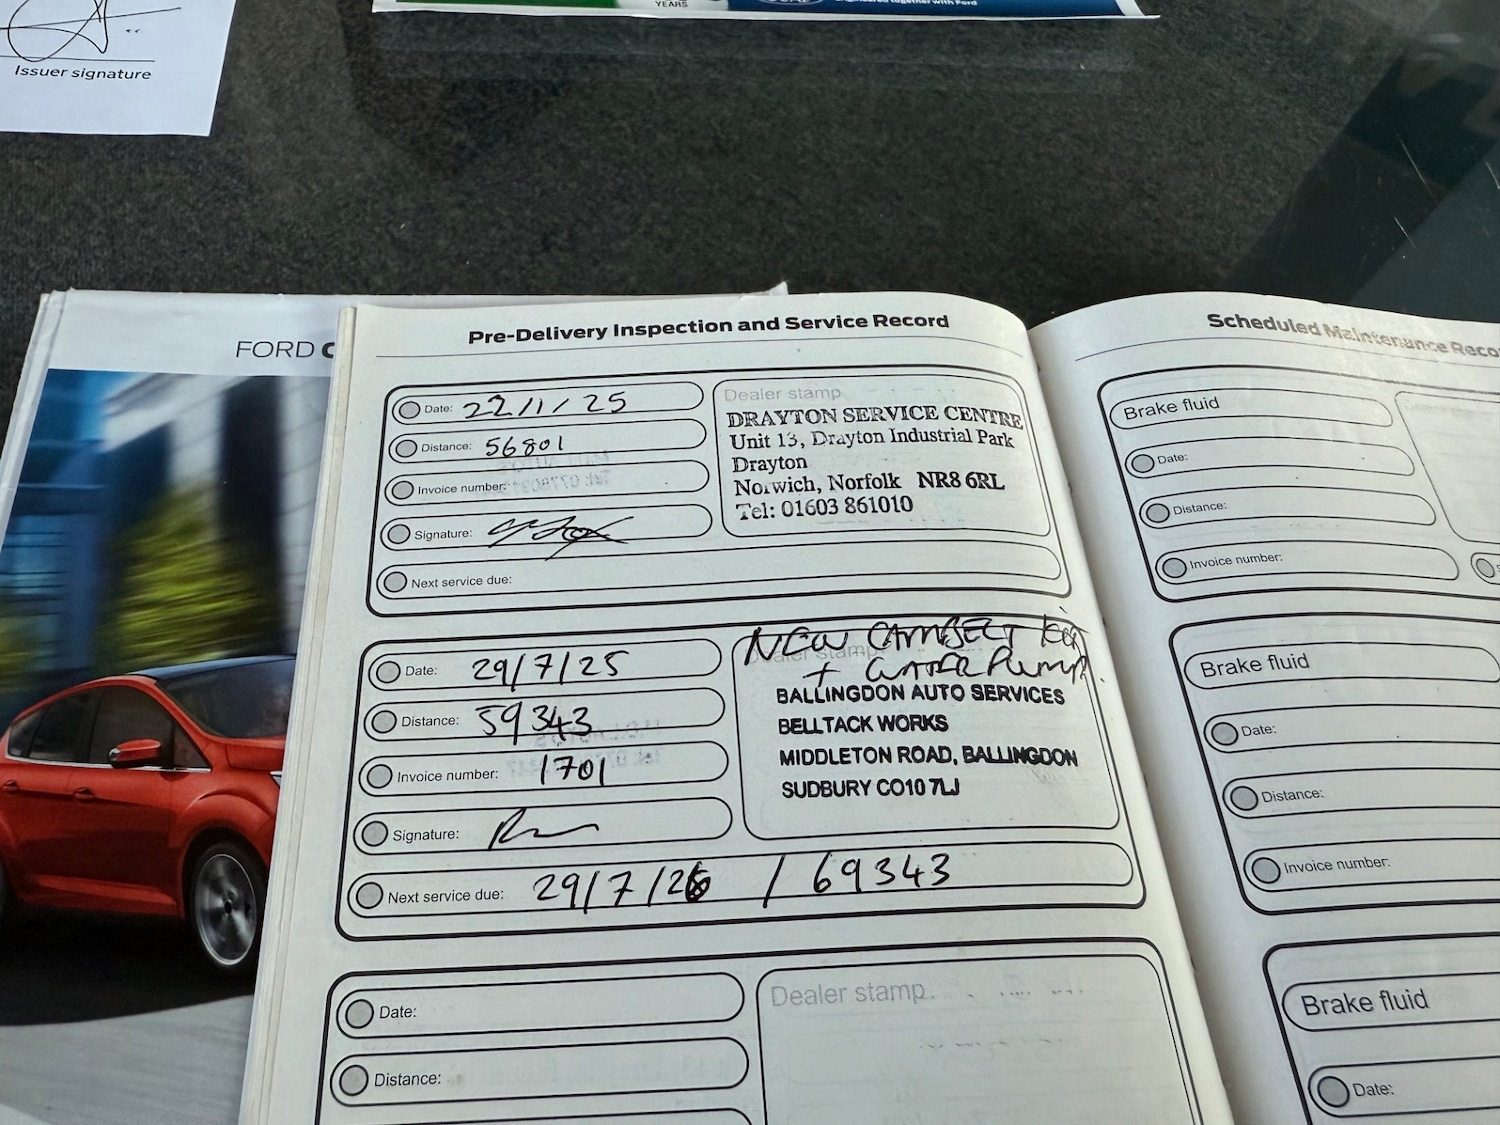 YEARS
Issuer signature
FORD C
Pre-Delivery Inspection and Service Record
Date: 22/1/25
Distance: 56801
Invoice number:
Signature:
Next service due:
Dealer stamp
DRAYTON SERVICE CENTRE
Unit 13, Drayton Industrial Park
Drayton
Norwich, Norfolk NR8 6RL
Tel: 01603 861010
Date: 29/7/25
Distance: 59343
Invoice number: 1701
Signature:
Next service due: 29/7/26 / 69343
Dealer stamp
NEW CAMBELT KIT
+ WATER PUMP.
BALLINGDON AUTO SERVICES
BELLTACK WORKS
MIDDLETON ROAD, BALLINGDON
SUDBURY CO10 7LJ
Date:
Distance:
Dealer stamp
Scheduled Maintenance Reco
Brake fluid
Date:
Distance:
Invoice number:
Brake fluid
Date:
Distance:
Invoice number:
Brake fluid
Date: